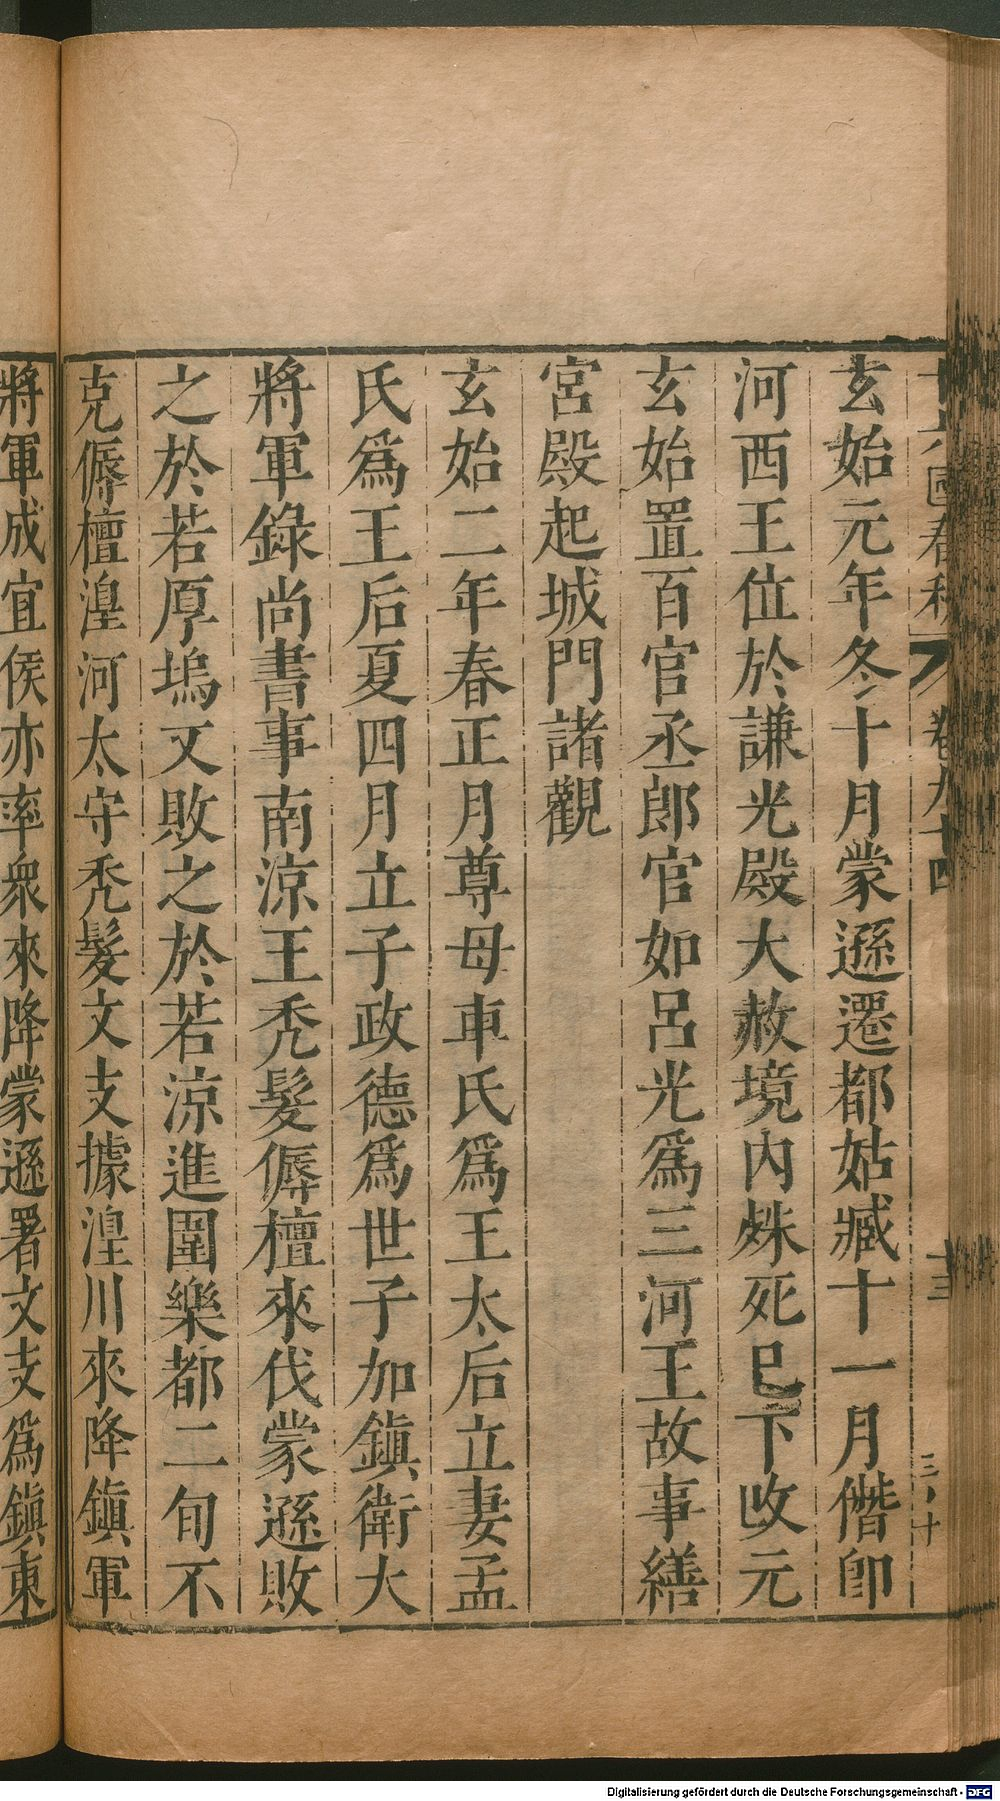 國春秋 卷九十四 十三
玄始元年冬十月蒙遜遷都姑臧十一月僭卽
河西王位於謙光殿大赦境內殊死已下改元
玄始置百官丞郎官如呂光爲三河王故事繕
宮殿起城門諸觀
玄始二年春正月尊母車氏爲王太后立妻孟
氏爲王后夏四月立子政德爲世子加鎭衛大
將軍錄尚書事南涼王禿髮傉檀來伐蒙遜敗
之於若厚塢又敗之於若涼進圍樂都二旬不
克傉檀湟河太守禿髮文支據湟川來降鎭軍
將軍成宜侯亦率衆來降蒙遜署文支爲鎭東
Digitalisierung gefördert durch die Deutsche Forschungsgemeinschaft - DFG